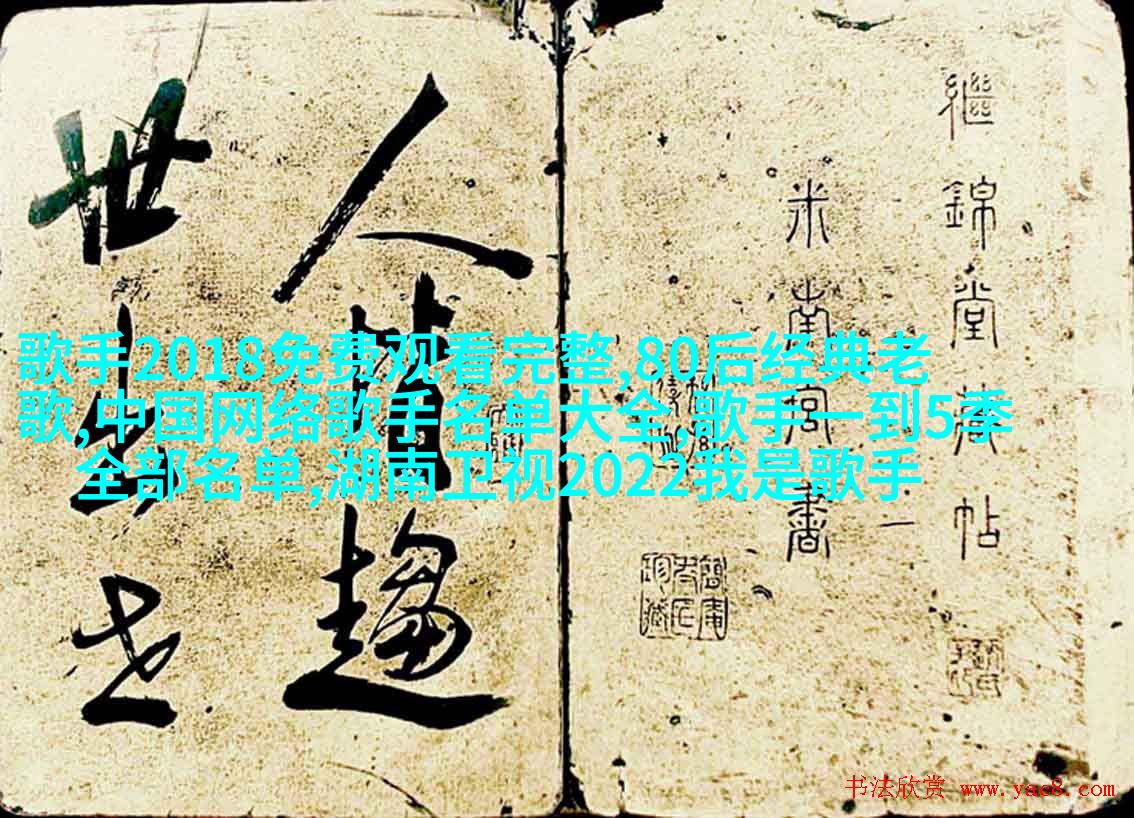 繼錦堂帖
米南宮書
一
人皆趨
世出世
歌手2018免费观看完整,80后经典老
歌,中国网络歌手名单大全,歌手一到5季
全部名单,湖南卫视2022我是歌手
书法欣赏 www.yac8.com